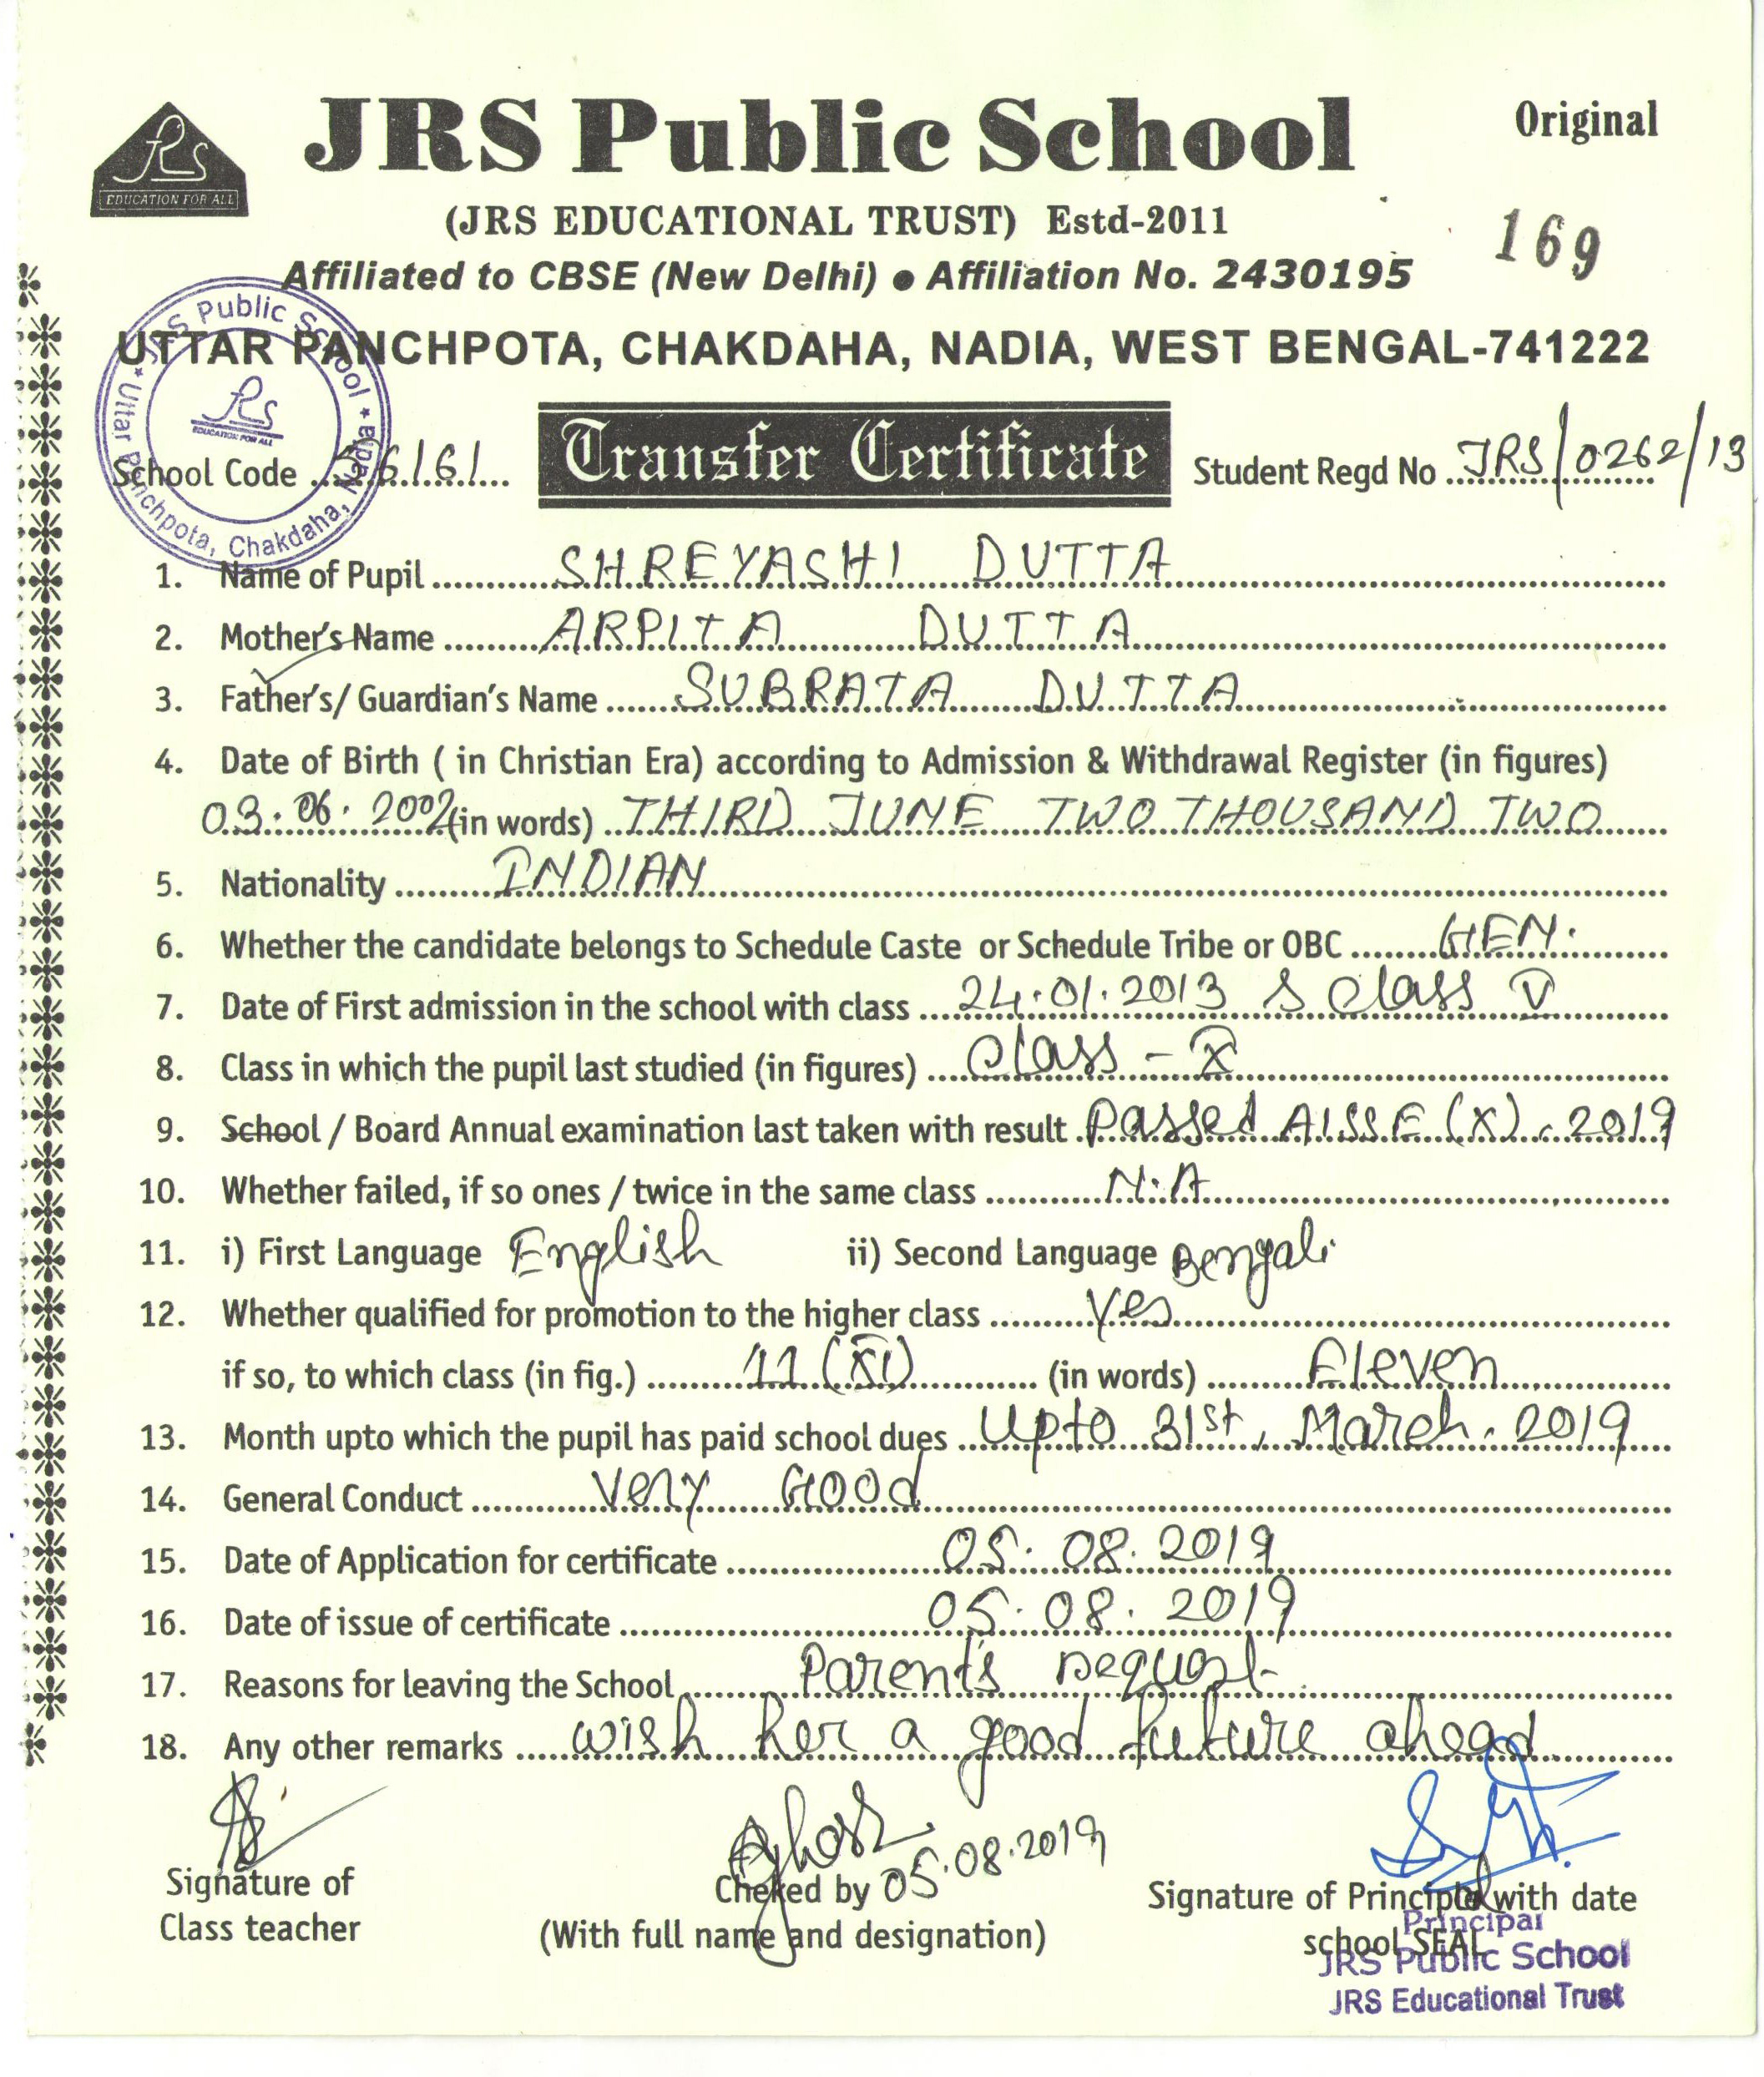 JRS Public School
Original
JRS
EDUCATION FOR ALL
(JRS EDUCATIONAL TRUST) Estd-2011
169
Affiliated to CBSE (New Delhi) ● Affiliation No. 2430195
UTTAR PANCHPOTA, CHAKDAHA, NADIA, WEST BENGAL-741222
JRS Public School * Uttar Panchpota, Chakdaha, Nadia *
JRS
EDUCATION FOR ALL
School Code ...56161... Transfer Certificate Student Regd No ..JRS/0262/13
1. Name of Pupil ........ SHREYASHI DUTTA ........
2. Mother's Name ........ ARPITA DUTTA ........
3. Father's/ Guardian's Name ....... SUBRATA DUTTA ........
4. Date of Birth ( in Christian Era) according to Admission & Withdrawal Register (in figures)
03.06.2002 (in words) .. THIRD JUNE TWO THOUSAND TWO ......
5. Nationality ........ INDIAN ........
6. Whether the candidate belongs to Schedule Caste or Schedule Tribe or OBC ........ GEN. ........
7. Date of First admission in the school with class .... 24.01.2013 & Class V ........
8. Class in which the pupil last studied (in figures) .... Class - X ........
9. School / Board Annual examination last taken with result . Passed AISSE (X), 2019
10. Whether failed, if so ones / twice in the same class ........ N.A ........
11. i) First Language English ii) Second Language Bengali
12. Whether qualified for promotion to the higher class ........ Yes ........
if so, to which class (in fig.) ........ 11 (XI) ........ (in words) ........ Eleven ........
13. Month upto which the pupil has paid school dues .. Upto 31st, March. 2019 ....
14. General Conduct ........ Very Good ........
15. Date of Application for certificate ........ 05.08.2019 ........
16. Date of issue of certificate ........ 05.08.2019 ........
17. Reasons for leaving the School ........ Parent's request ........
18. Any other remarks ..... wish her a good future ahead ........
Ghosh 05.08.2019
Signature of
Class teacher
Cheked by
(With full name and designation)
Signature of Principal with date
school SEAL
Principal
JRS Public School
JRS Educational Trust